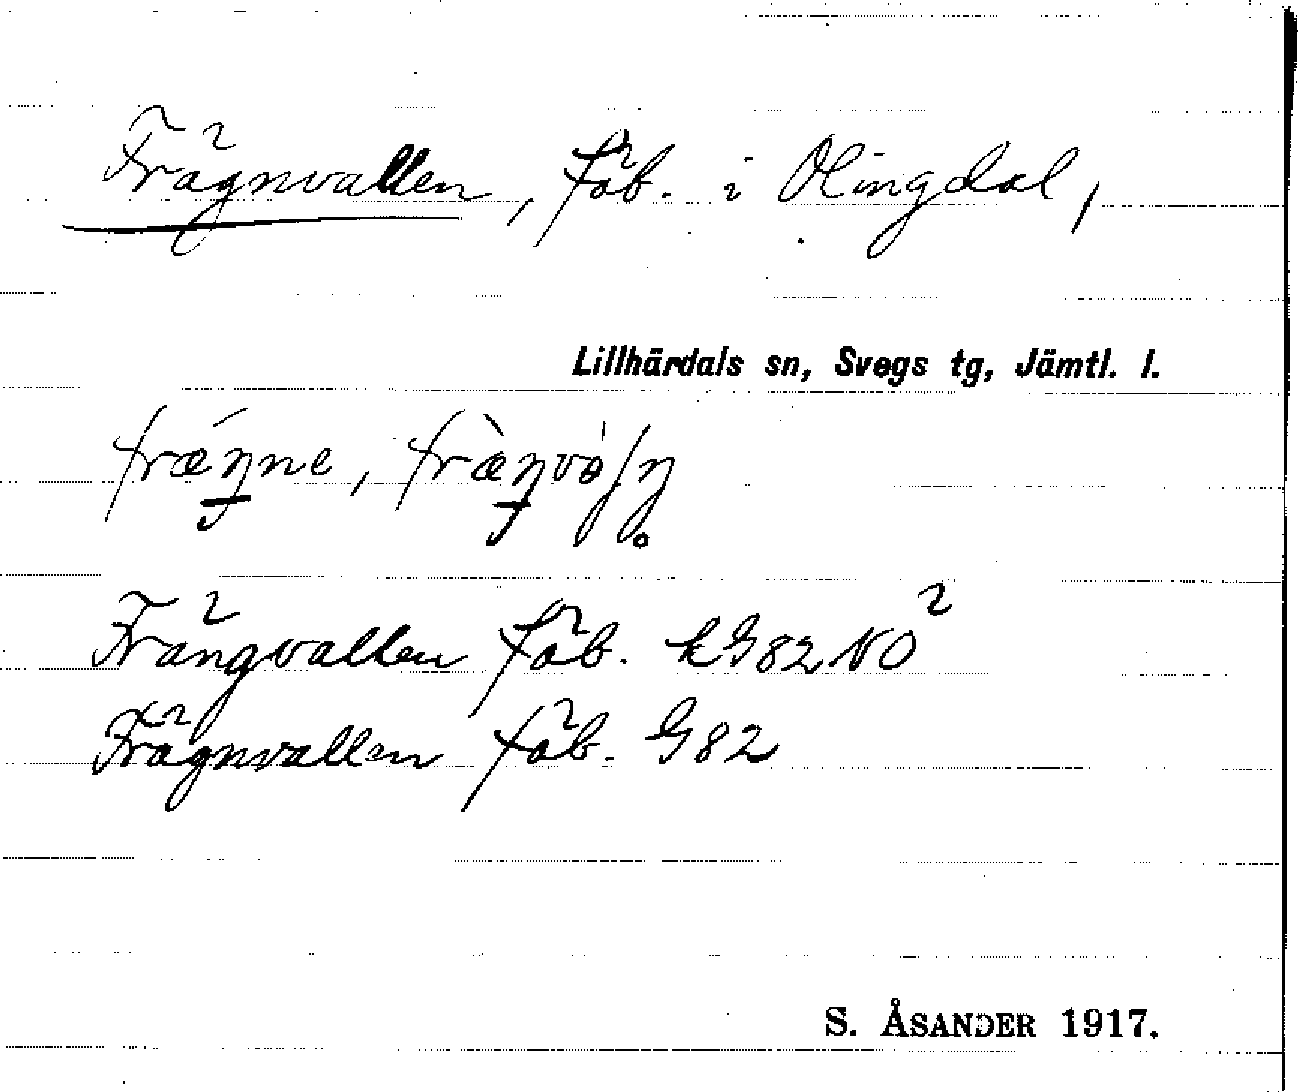 Frägnvallen, fäb. i Olingdal,
Lillhärdals sn, Svegs tg, Jämtl. l.
Frängvallen fäb. kG82NO²
Frägnvallen fäb. G82
S. ÅSANDER 1917.